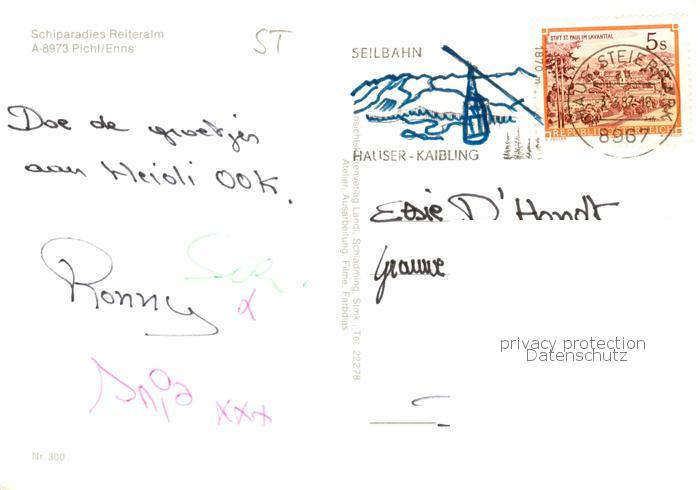 Schiparadies Reiteralm
A-8973 Pichl/Enns
ST
SEILBAHN
1870 m
HAUSER-KAIBLING
STIFT ST. PAUL IM LAVANTTAL
5s
REPUBLIK ÖSTERREICH
8967
Doe de groetjes
aan Heidi OOK.
Ronny
x
Anja xxx
Essie D'Hondt
Ansichtskartenverlag Landl, Schladming, Stmk., Tel. 22278
Atelier, Ausarbeitung, Filme, Farbdias
privacy protection
Datenschutz
Nr. 300